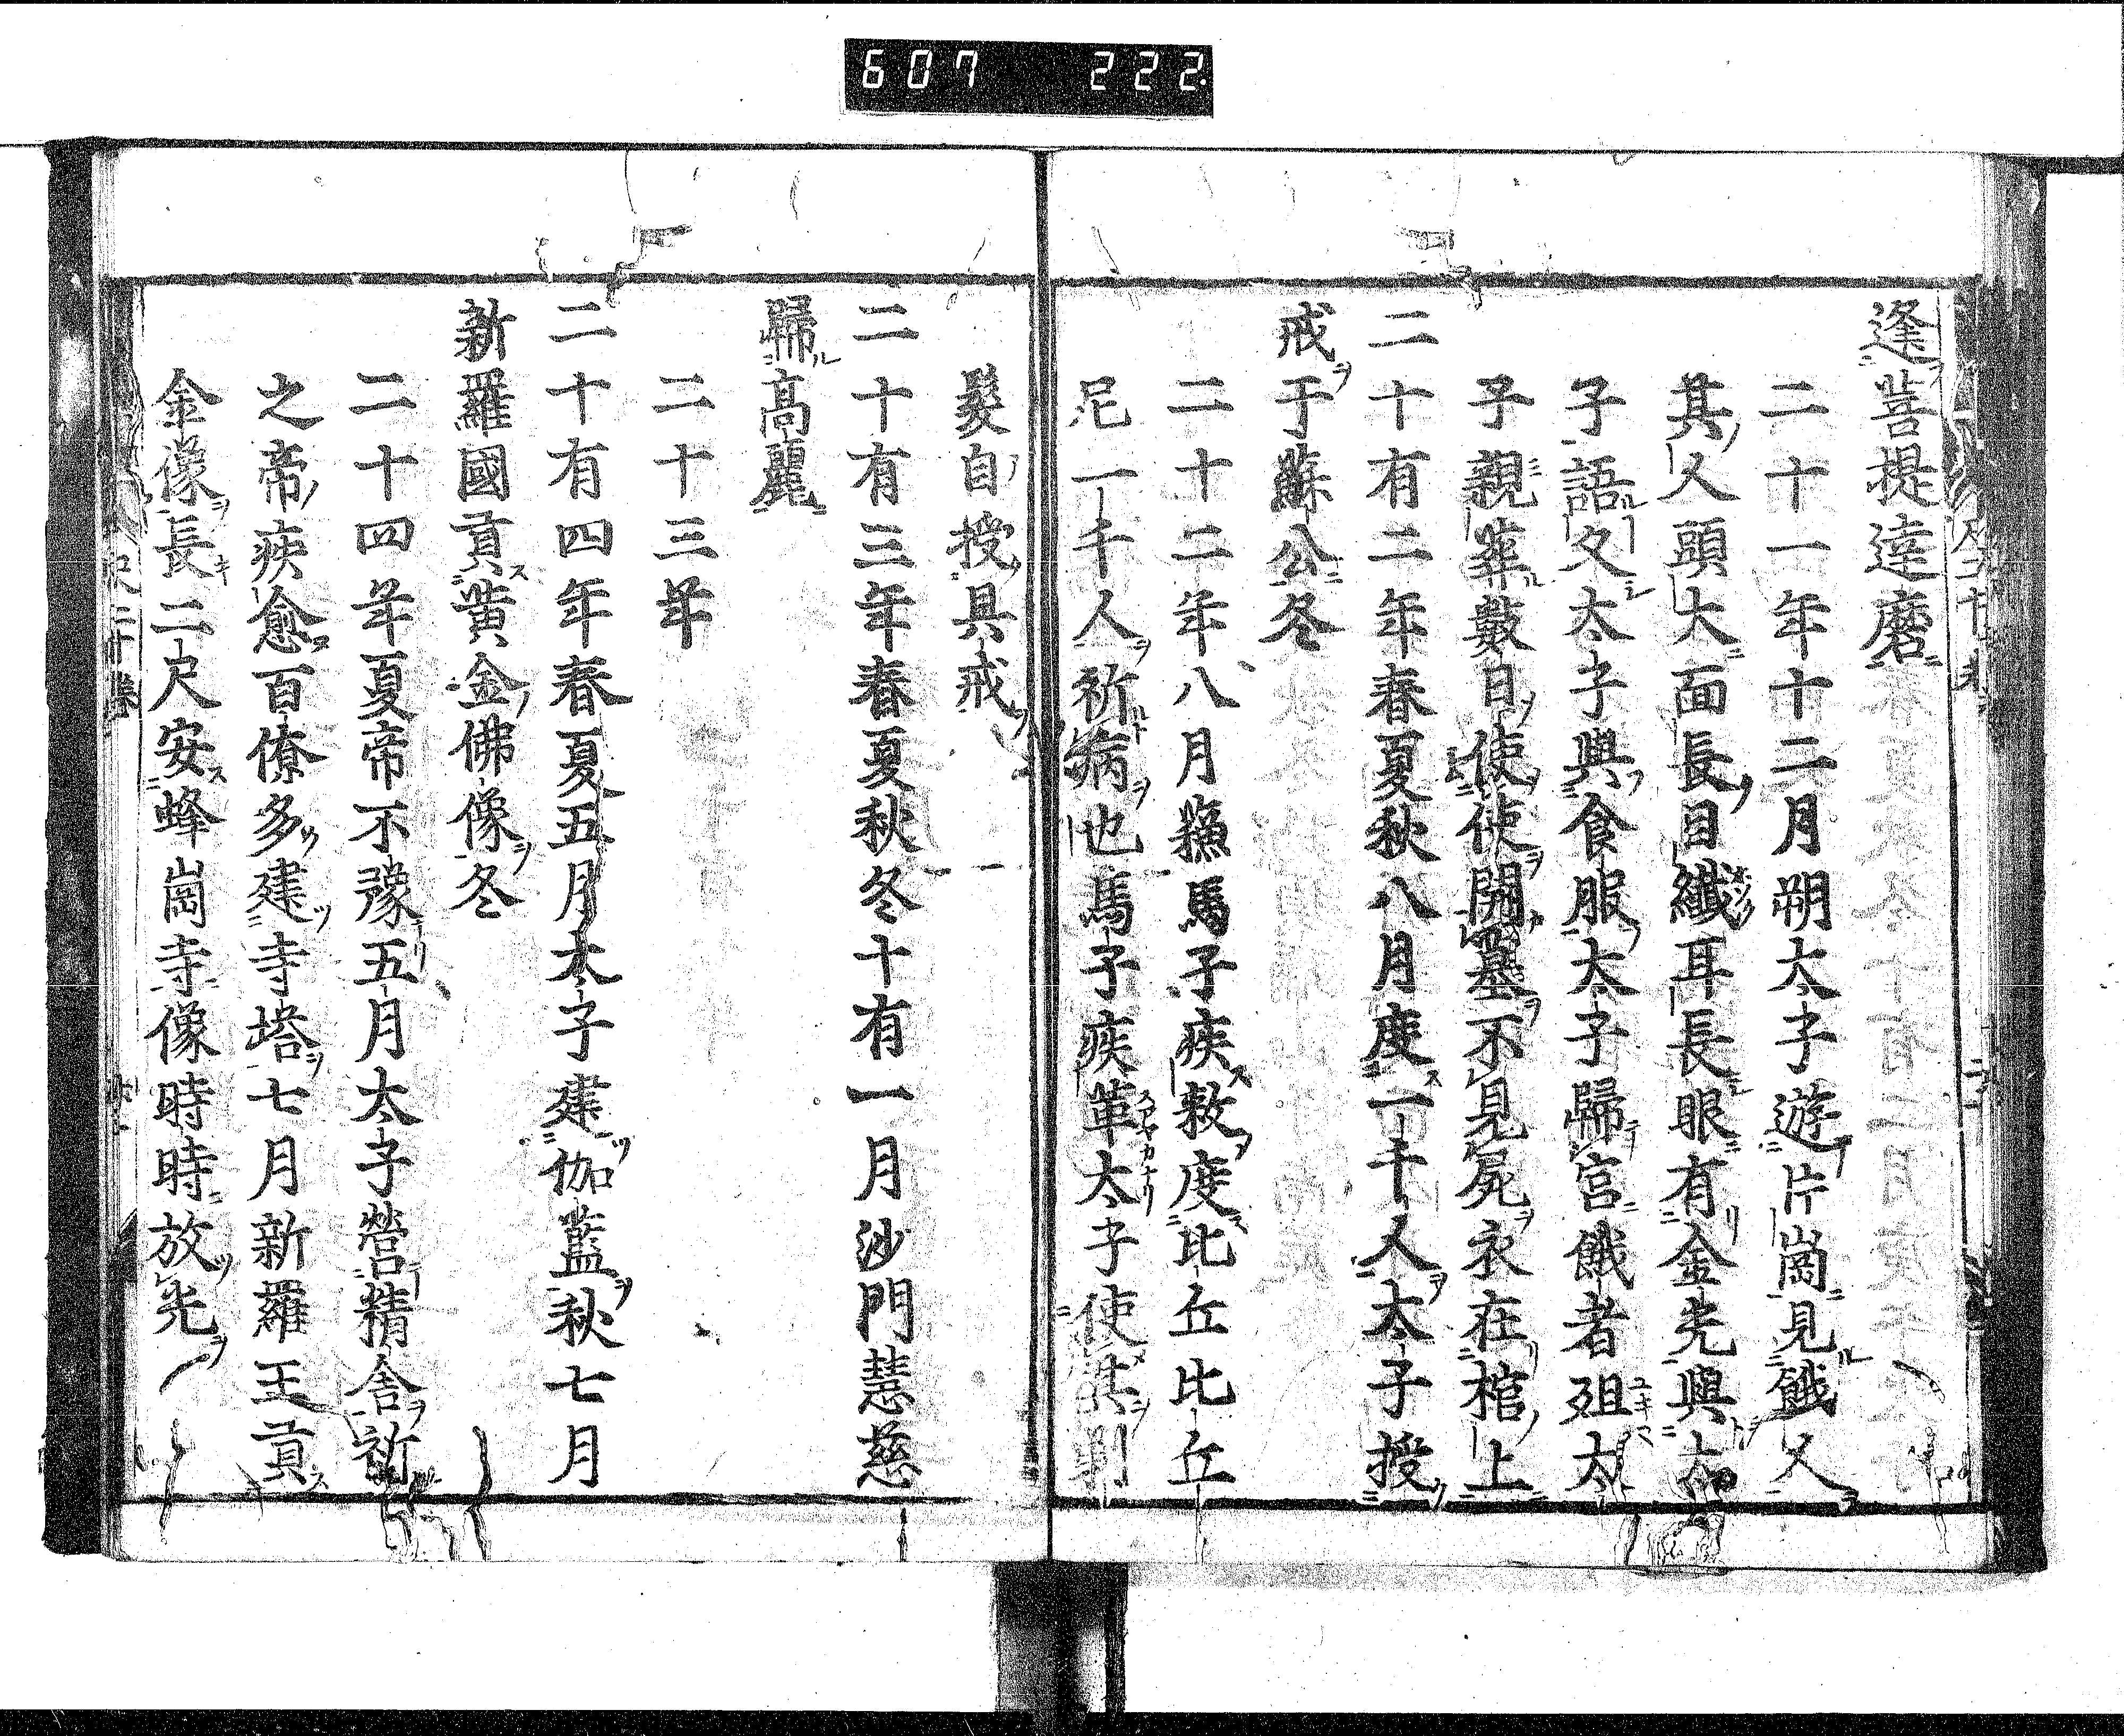 607 222
逢菩提達磨
二十一年十二月朔太子遊片崗見餓人
其人頭大面長目纖耳長眼有金光與太
子語久太子與食服太子歸宮餓者殂太
子親葬數日使使開墓不見屍衣在棺上
二十有二年春夏秋八月度一千人太子授
戒于蘇公冬
二十二年八月蘓馬子疾敕度比丘比丘
尼一千人祈病也馬子疾革太子使其剃
髮自授具戒
二十有三年春夏秋冬十有一月沙門慧慈
歸高麗
二十三年
二十有四年春夏五月太子建伽藍秋七月
新羅國貢黃金佛像冬
二十四年夏帝不豫五月太子營精舍祈
之帝疾愈百僚多建寺塔七月新羅王貢
金像長二尺安蜂崗寺像時時放光